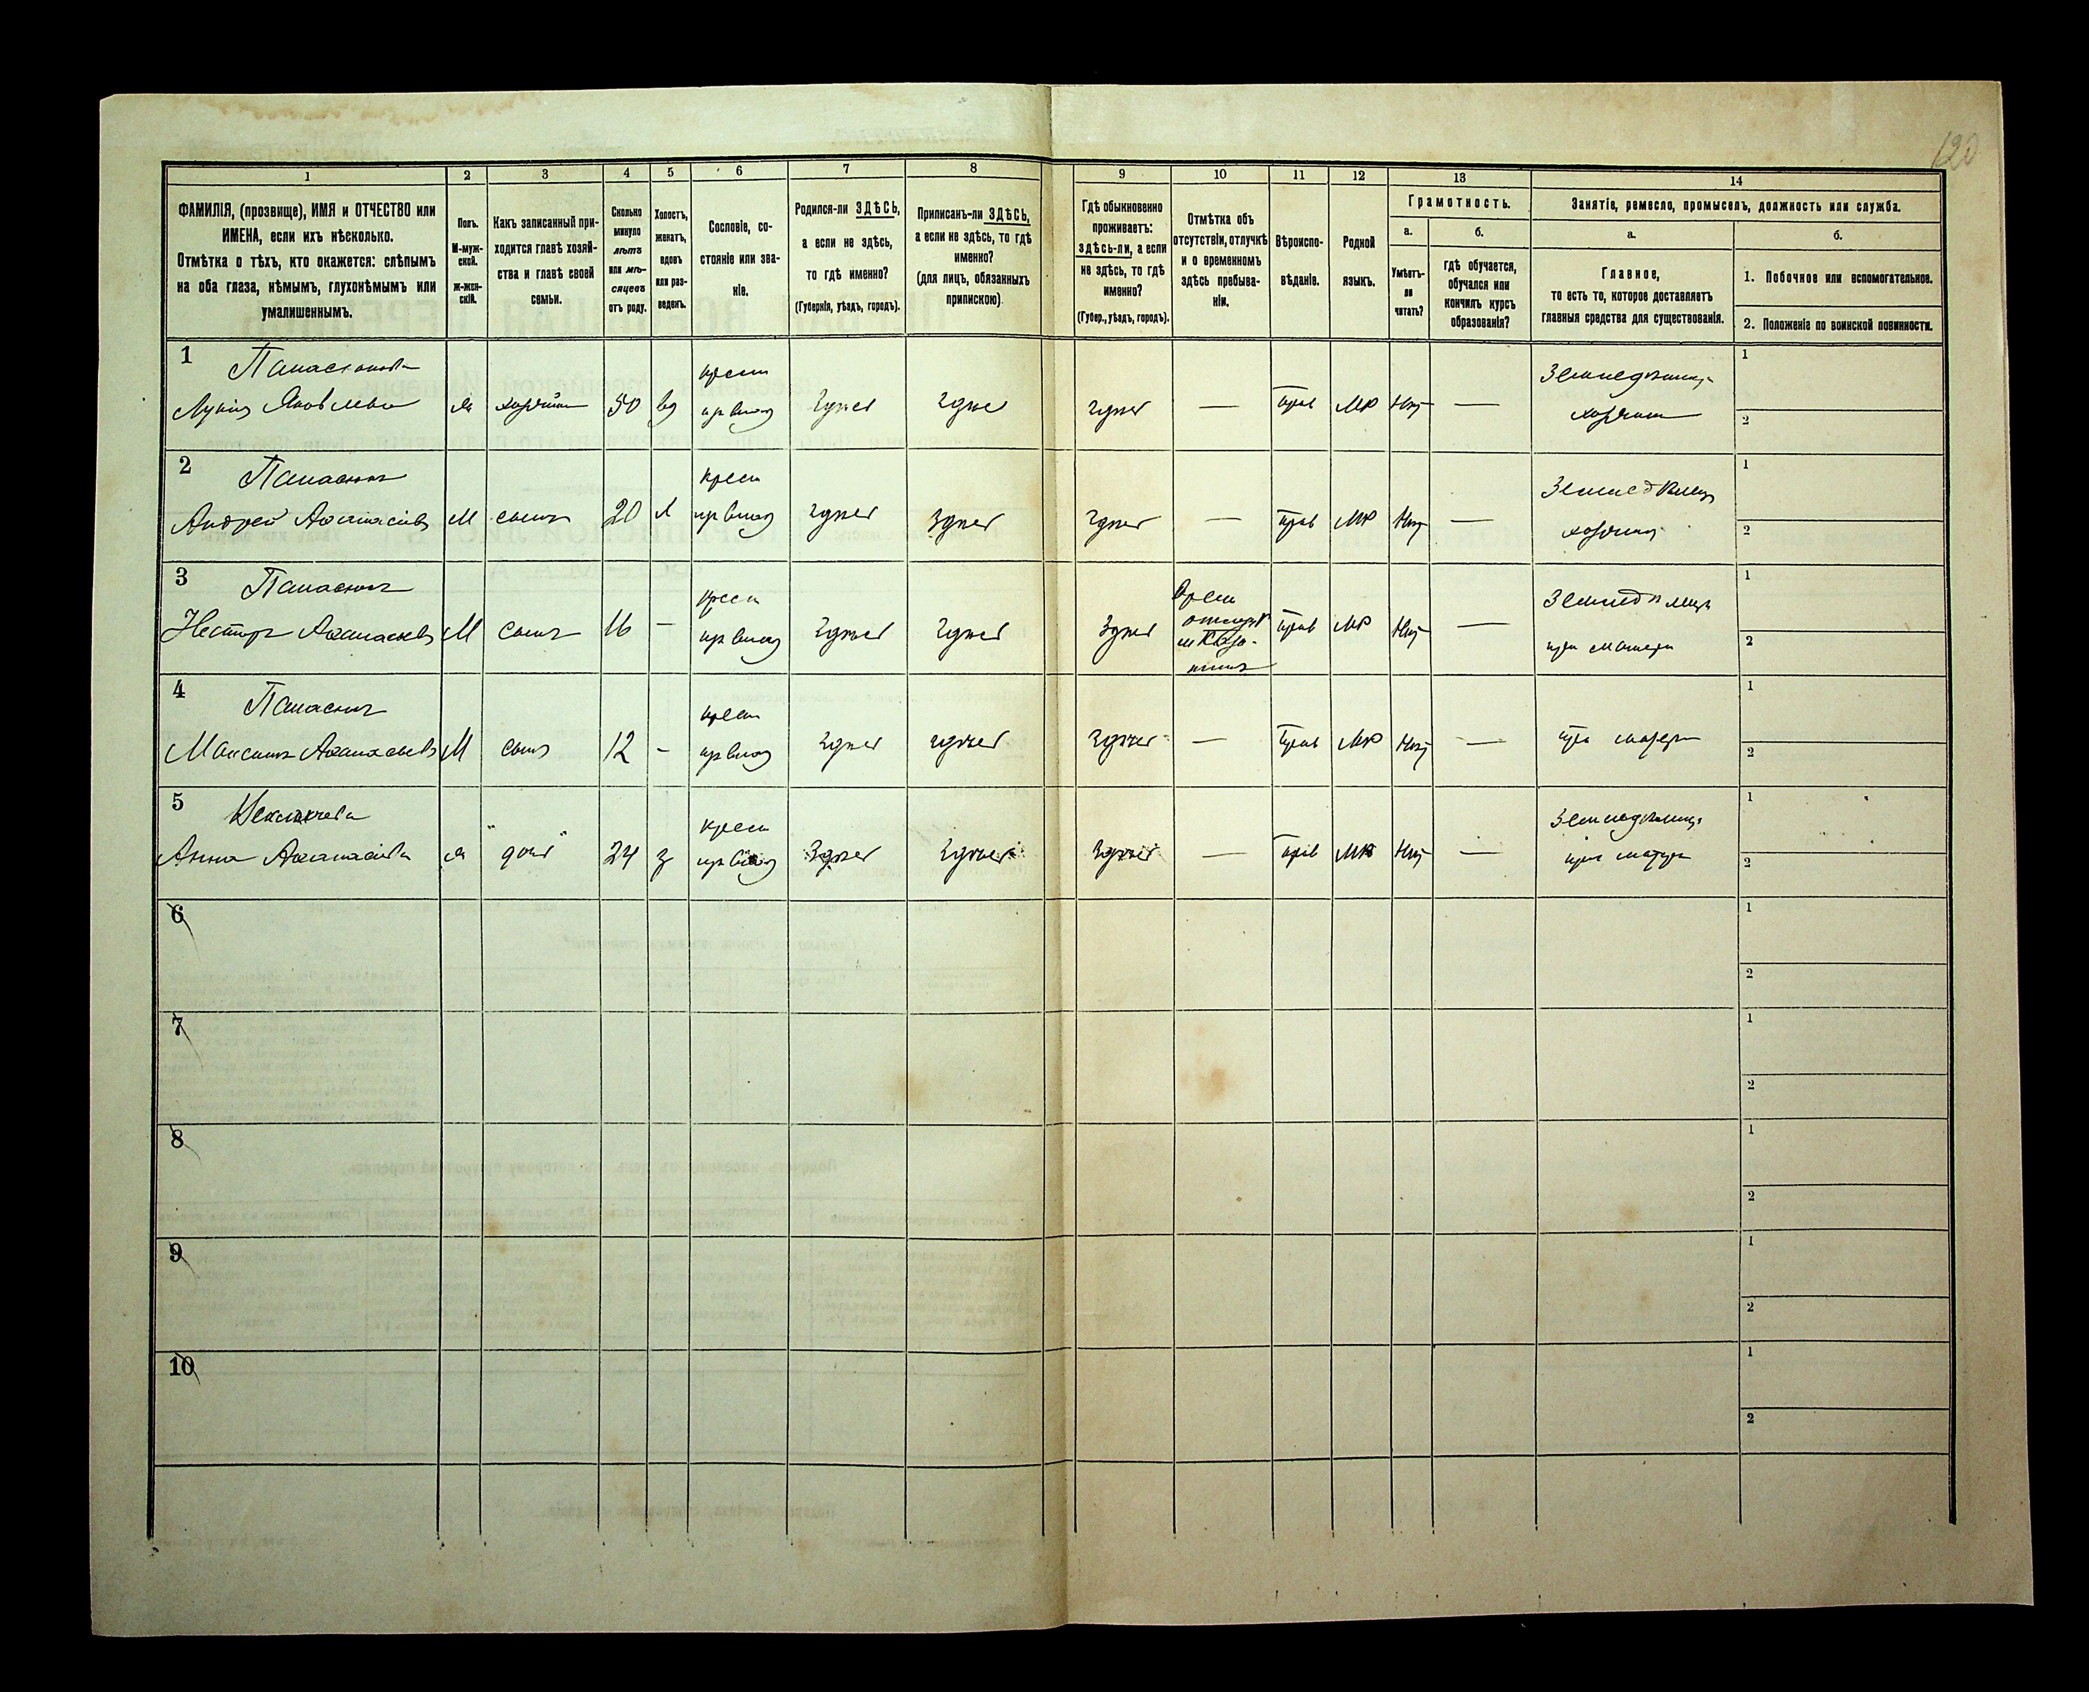 120
1 2 3 4 5 6 7 8 9 10 11 12 13 14
ФАМИЛІЯ, (прозвище), ИМЯ и ОТЧЕСТВО или
ИМЕНА, если ихъ нѣсколько.
Отмѣтка о тѣхъ, кто окажется: слѣпымъ
на оба глаза, нѣмымъ, глухонѣмымъ или
умалишеннымъ.
Полъ.
М-муж-
ской.
ж-жен-
скій.
Какъ записанный при-
ходится главѣ хозяй-
ства и главѣ своей
семьи.
Сколько
минуло
лѣтъ
или мѣ-
сяцевъ
отъ роду.
Холостъ,
женатъ,
вдовъ
или раз-
веденъ.
Сословіе, со-
стояніе или зва-
ніе.
Родился-ли ЗДѢСЬ,
а если не здѣсь,
то гдѣ именно?
(Губернія, уѣздъ, городъ).
Приписанъ-ли ЗДѢСЬ,
а если не здѣсь, то гдѣ
именно?
(для лицъ, обязанныхъ
припискою).
Гдѣ обыкновенно
проживаетъ:
здѣсь-ли, а если
не здѣсь, то гдѣ
именно?
(Губер., уѣздъ, городъ).
Отмѣтка объ
отсутствіи, отлучкѣ
и о временномъ
здѣсь пребыва-
ніи.
Вѣроиспо-
вѣданіе.
Родной
языкъ.
Грамотность.
а.
Умѣетъ-
ли
читать?
б.
гдѣ обучается,
обучался или
кончилъ курсъ
образованія?
Занятіе, ремесло, промыселъ, должность или служба.
а.
Главное,
то есть то, которое доставляетъ
главныя средства для существованія.
б.
1. Побочное или вспомогательное.
2. Положеніе по воинской повинности.
1
крест
Яковлева хозяйка 50 вд здѣсь здѣсь здѣсь — прав мр Нѣт —
1
2
2 Панасюкъ
крест
Андрей Афанасіевъ М сынъ 20 х здѣсь здѣсь здѣсь — прав мр Нѣт —
1
2
3 Панасюкъ
крест
Несторъ Афанасьевъ М сынъ 16 — здѣсь здѣсь здѣсь прав мр Нѣт —
при матери
1
2
4 Панасюкъ
крест
Максимъ Афанасьевъ М сынъ 12 — здѣсь здѣсь здѣсь — прав мр Нѣт — при матери
1
2
5
крест
Анна Афанасіева дочь 24 з здѣсь здѣсь здѣсь — прав мр Нѣт —
при матери
1
2
6
1
2
7
1
2
8
1
2
9
1
2
10
1
2